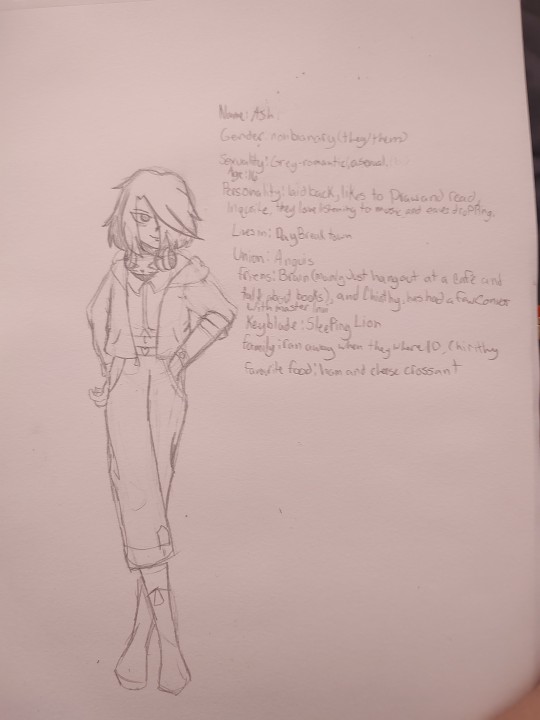 Name: Ash
Gender: nonbianary (they/them)
Sexuality: Grey-romantic, asexual,
Age: 16
Personality: laid back, likes to Draw and read,
they love listening to music and eves dropping.
Lives in: DayBreak town
Union: Anguis
Friens: Brain (manly Just hangout at a cafe and
talk about books), and Chirithy, has had a few conver
with master Inv
Keyblade: Sleeping Lion
Family: ran away when they where 10, Chirithy
Favorite food: ham and cheese crossant